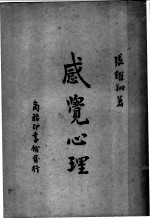 張耀翔著
感覺心理
商務印書館發行